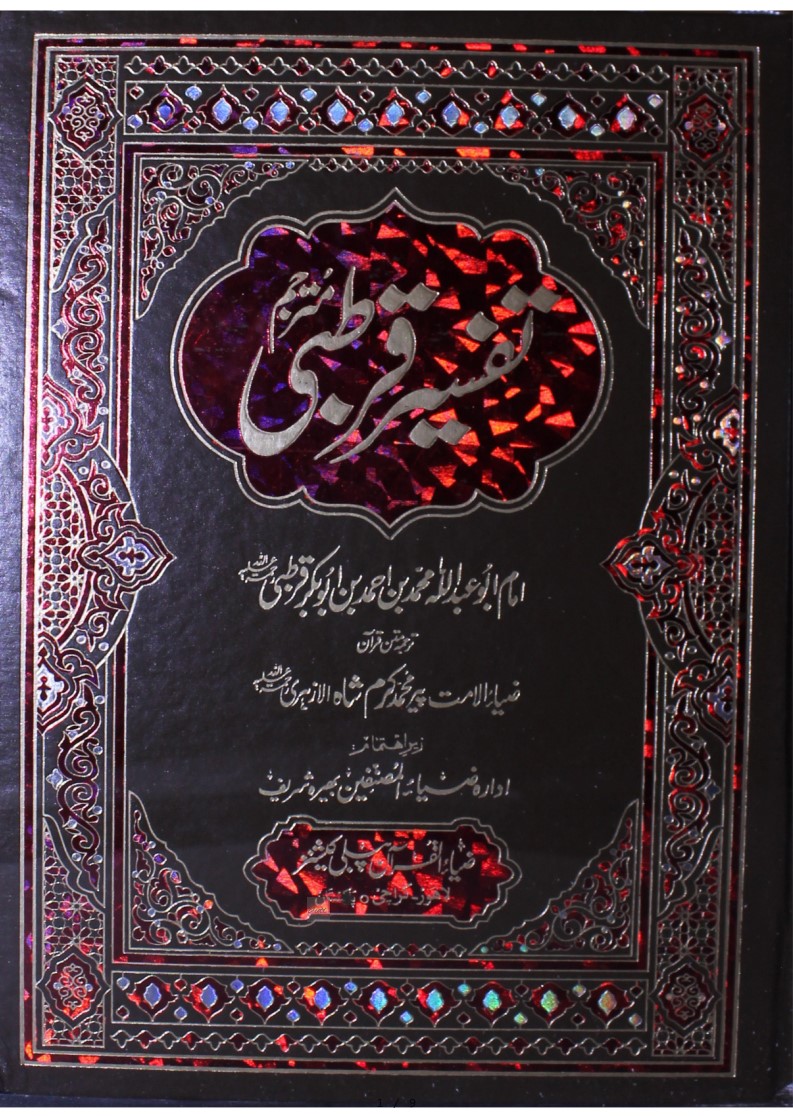 تفسیر قرطبی مترجم
امام ابو عبد اللہ محمد بن احمد بن ابو بکر قرطبی رحمۃ اللہ علیہ
ترجمہ متن قرآن
ضیاء الامت پیر محمد کرم شاہ الازہری رحمۃ اللہ علیہ
زیر اہتمام:
ادارہ ضیاء المصنفین بھیرہ شریف
ضیاء القرآن پبلی کیشنز
لاہور۔ کراچی ○ پاکستان
1 / 9